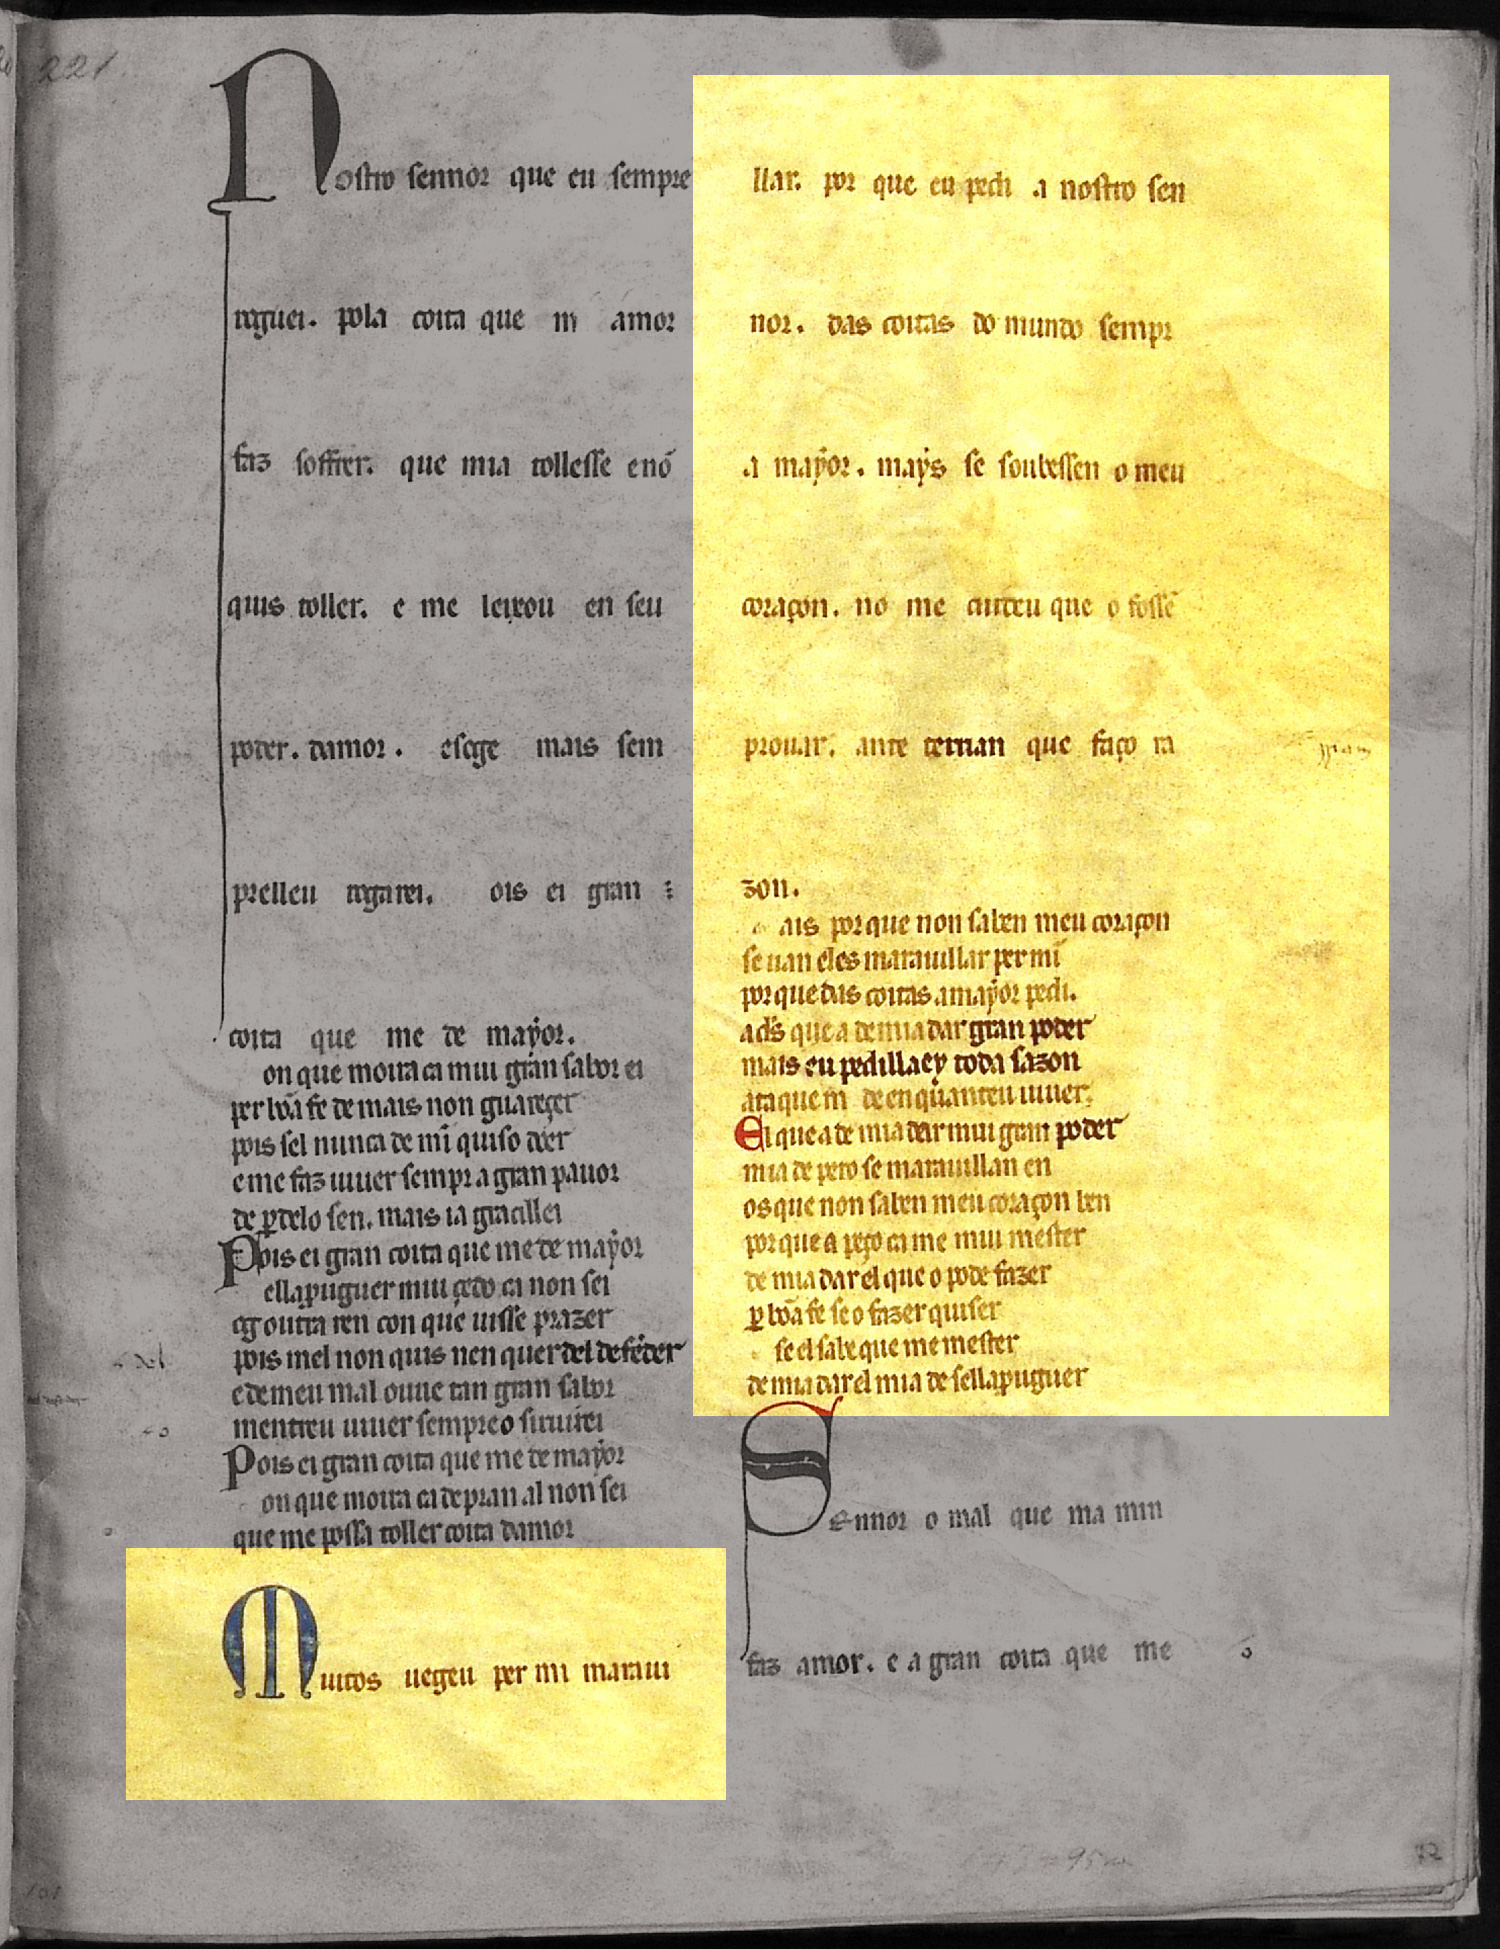 221
Nostro sennor que eu sempre
roguei. pola coita que m amor
faz soffrer. que mia tollesse enō
quis toller. e me leixou en seu
poder. damor. esege mais sem
prelleu rogarei. ois ei gran
coita que me de maẏor.
on que moira ca mui gran sabor ei
per bōa fe de mais non guareçer
pois sel nunca de mī quiso doer
e me faz uiuer sempr a gran pauor
de ꝑdelo sen. mais ia graçillei
Pois ei gran coita que me de maẏor
ellaꝓuguer mui çedo ca non sei
og outra ren con que uisse prazer
pois mel non quis nen quer del defēder
e de meu mal ouue tan gran sabor
mentreu uiuer sempre o seruirei
Pois ei gran coita que me de maẏor
on que moira ca de pran al non sei
que me possa toller coita damor
Muitos uegeu per mi maraui
llar. por que eu pedi a nostro sen
nor. das coitas do mundo sempr
a maẏor. maẏs se soubessen o meu
coraçon. no me cuideu que o fossē
prouar. ante terrian que faço ra
zon.
ais por que non saben meu coraçon
se uan eles marauillar per mī
por que das coitas a maẏor pedi.
a ds̄ que a de mia dar gran poder
mais eu pedillaey toda sazon
ata que m de en quanteu uiuer.
El que a de mia dar mui gran poder
mia de pero se marauillan en
os que non saben meu coraçon ben
por que a peço ca me mui mester
de mia dar el que o pode fazer
ꝑ bōa fe se o fazer quiser
se el sabe que me mester
de mia dar el mia de sellaꝓuguer
Sennor o mal que ma min
faz amor. e a gran coita que me